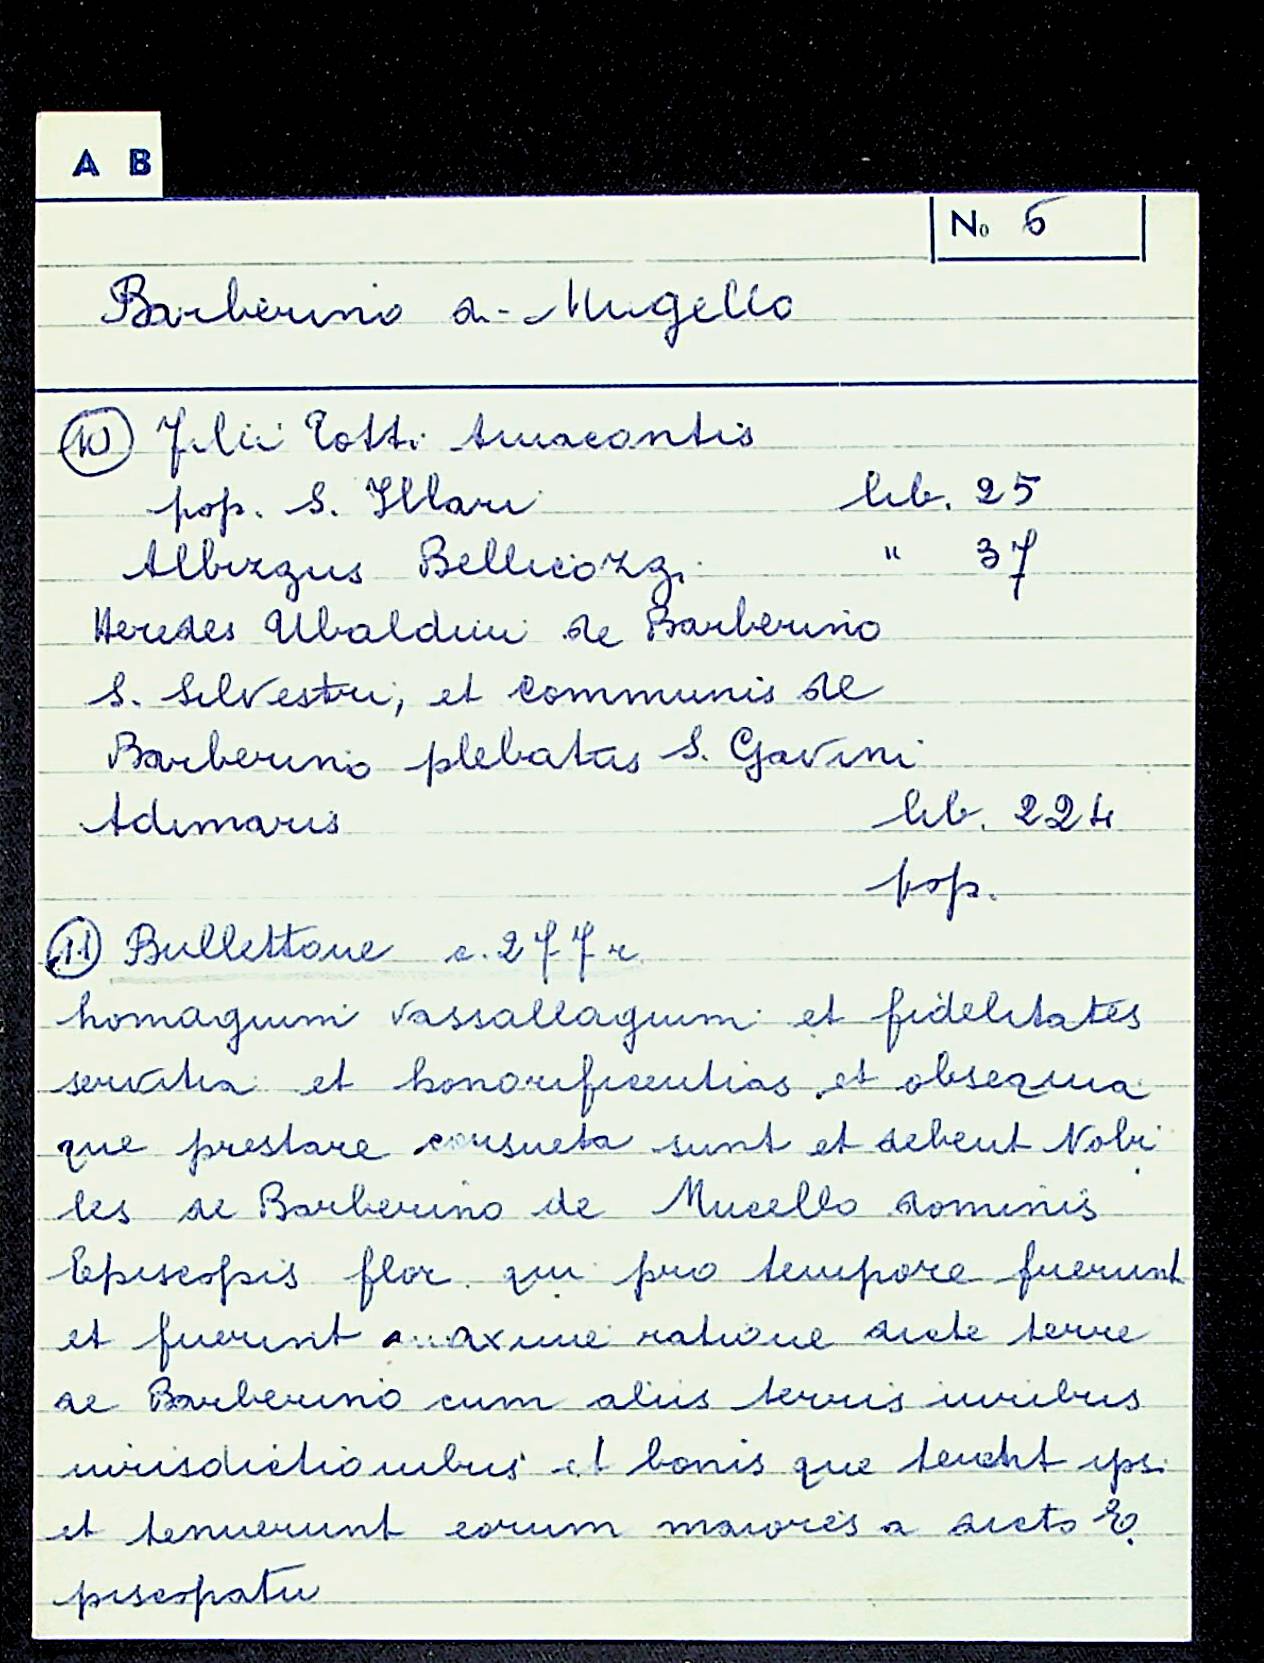 A B
No 5
Barberino di Mugello
10 Filii Totti Amacontis
pop. S. Yllari lib. 25
Albizzus Bellicozzi " 37
Heredes Ubaldini de Barberino
S. Silvestri, et communis de
Barberino plebatus S. Gavini
Adimaris lib. 224
pop.
11 Bullettone c. 277 r
homagium vassallagium et fidelitates
servitia et honorificentias et obsequia
que prestare consueta sunt et debent Nobi
les de Barberino de Mucello dominis
Episcopis flor. qui pro tempore fuerunt
et fuerint maxime ratione dicte terre
de Barberino cum aliis terris iuribus
iurisdictionibus et bonis que tenent ipsi
et tenuerunt eorum maiores a dicto E
piscopatu